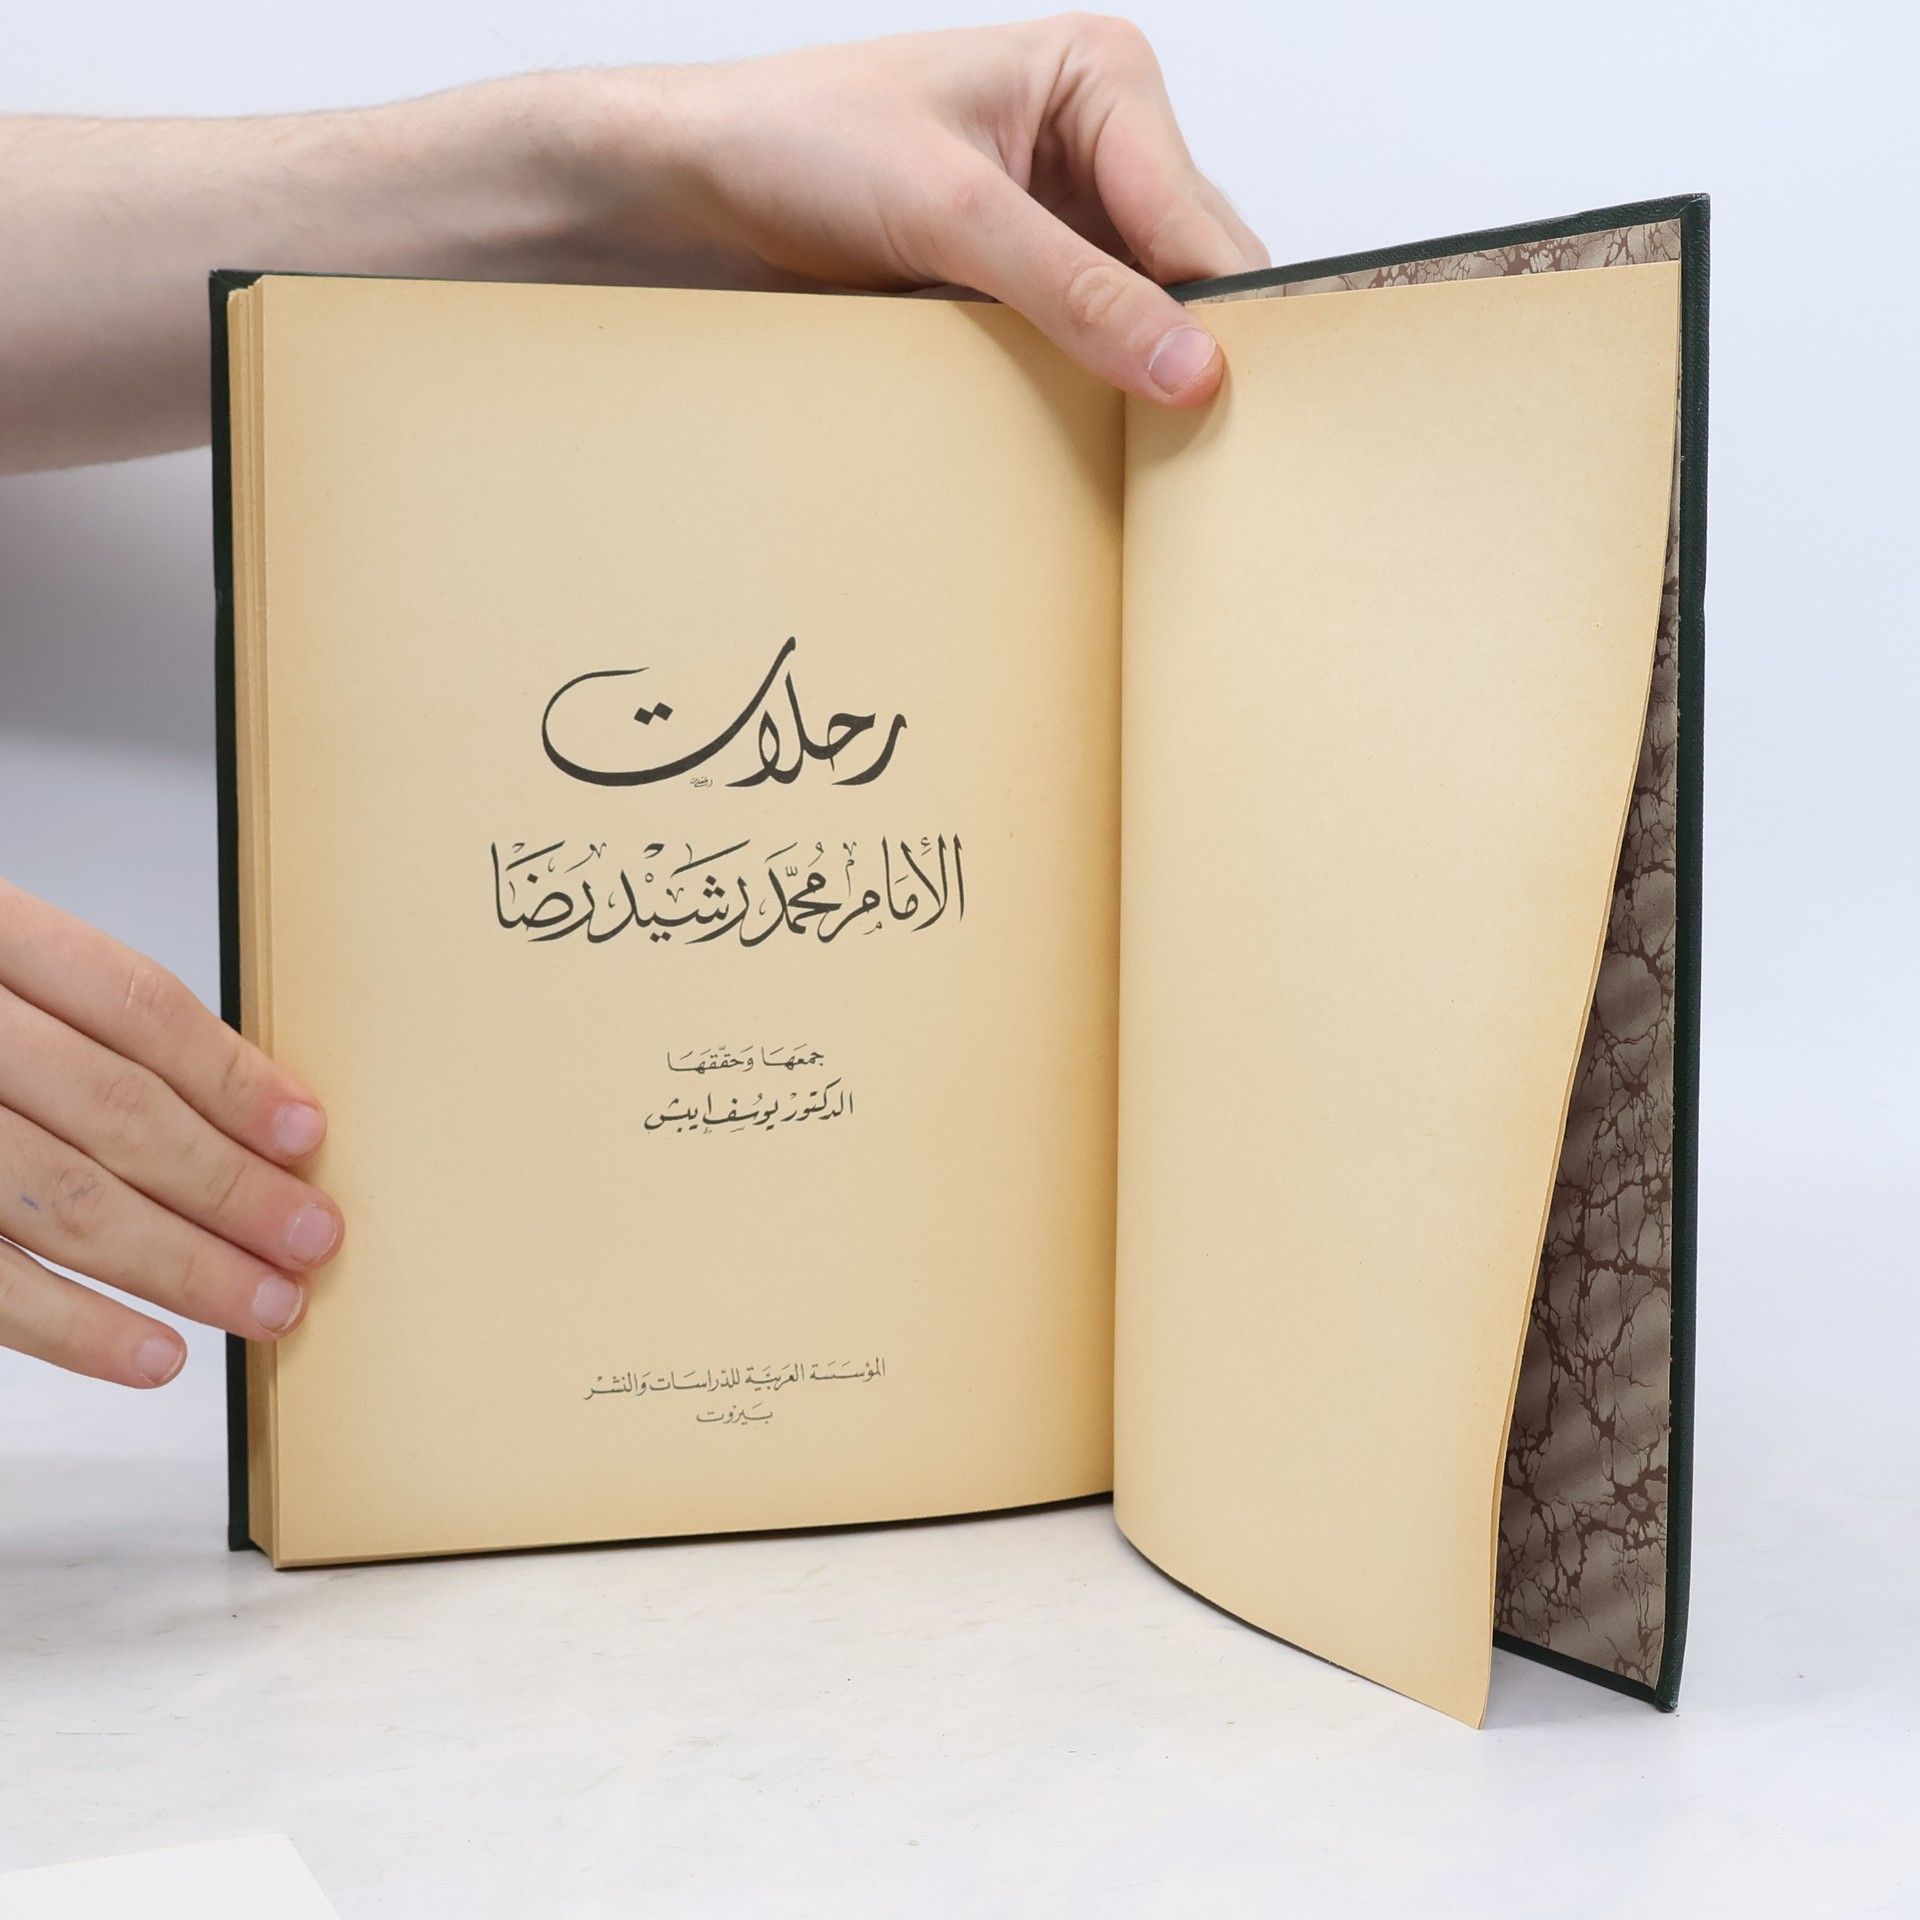 رحلات
الإمَام مُحمَّد رَشَيْد رَضَا
جمعَهَا وَحقّقهَا
الدكتور يوسُف إيبش
المؤسَسَة العَربيَّة للدّراسَات وَالنشْر
بَيروت